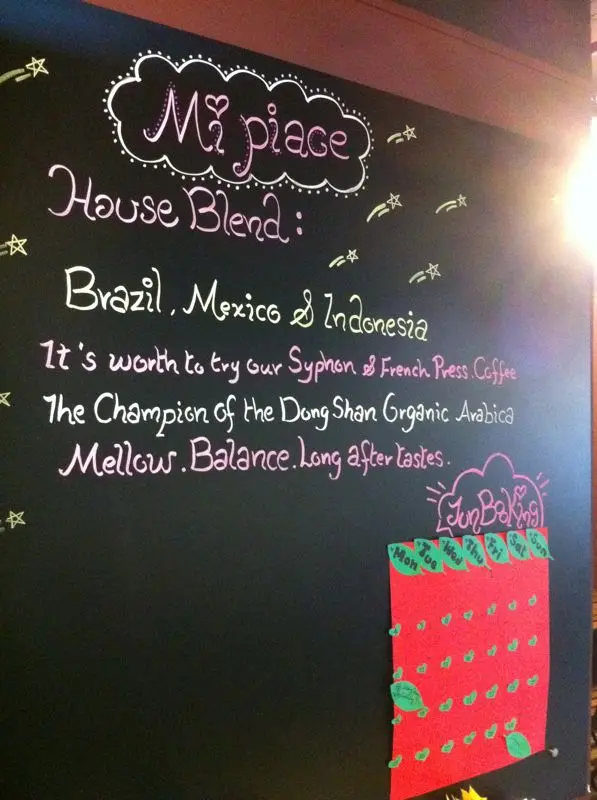 Mi piace
House Blend:
Brazil, Mexico & Indonesia
It's worth to try our Syphon & French Press. Coffee
The Champion of the Dong Shan Organic Arabica
Mellow. Balance. Long after tastes.
Jun Baking
Mon Tue Wed Thu Fri Sat Sun